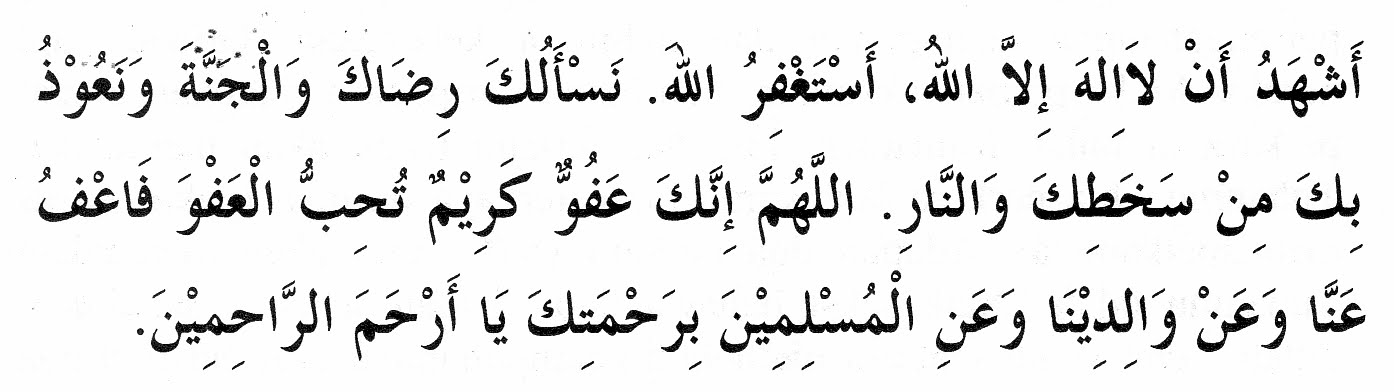 أَشْهَدُ أَنْ لاَاِلهَ إِلاَّ اللهُ، أَسْتَغْفِرُ اللهَ. نَسْأَلُكَ رِضَاكَ وَالْجَنَّةَ وَنَعُوْذُ
بِكَ مِنْ سَخَطِكَ وَالنَّارِ. اللَّهُمَّ إِنَّكَ عَفُوٌّ كَرِيْمٌ تُحِبُّ الْعَفْوَ فَاعْفُ
عَنَّا وَعَنْ وَالِدِيْنَا وَعَنِ الْمُسْلِمِيْنَ بِرَحْمَتِكَ يَا أَرْحَمَ الرَّاحِمِيْنَ.